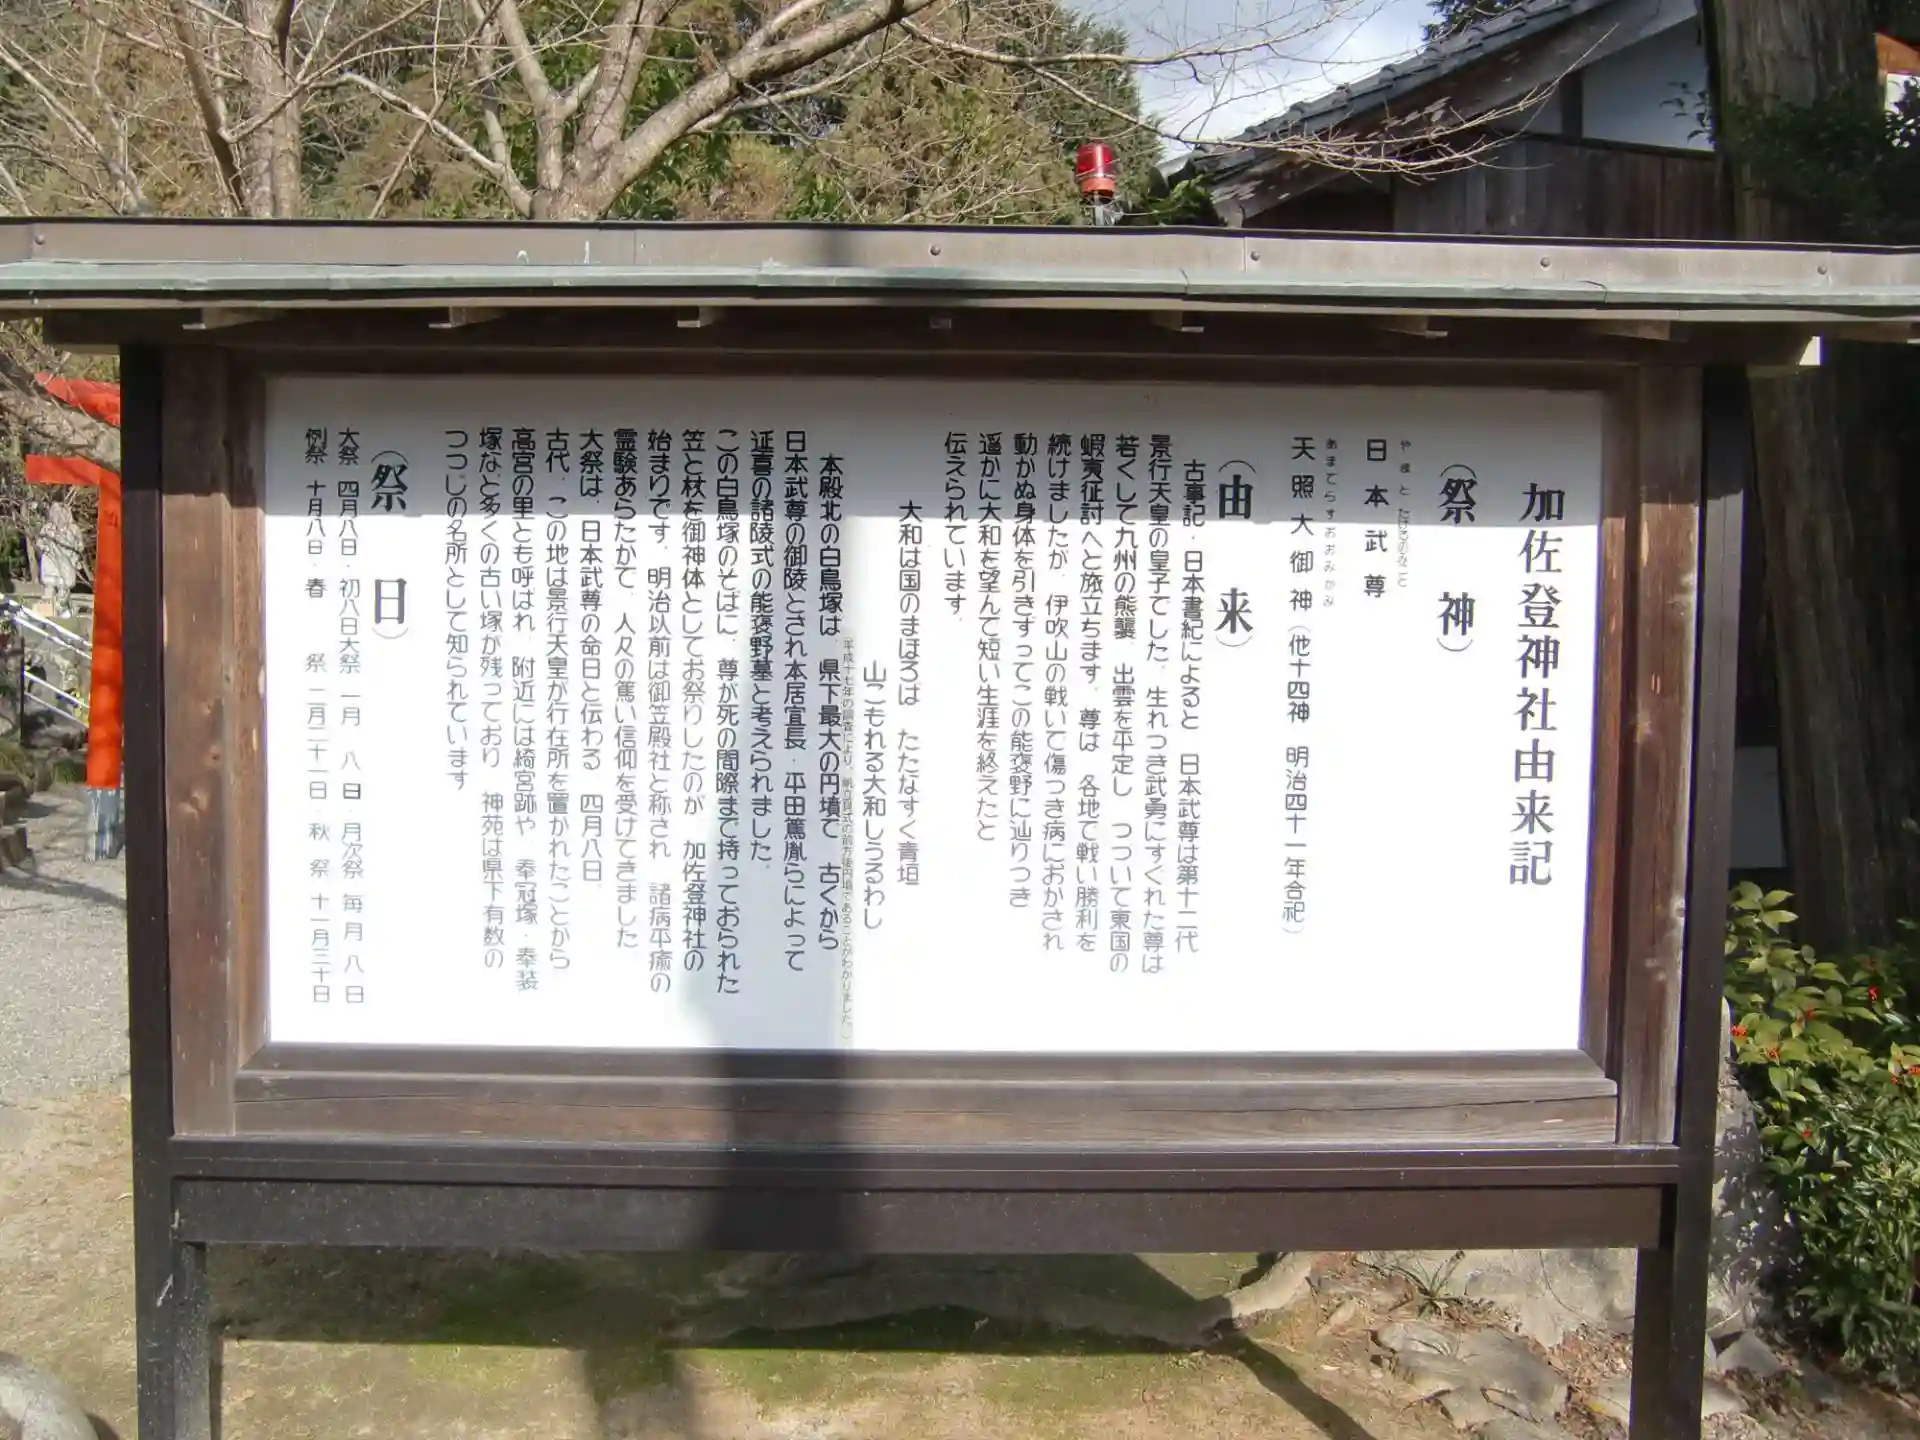 加佐登神社由来記
（祭　神）
やまとたけるのみこと
日本武尊
あまてらすおおみかみ
天照大御神（他十四神　明治四十一年合祀）
（由　来）
古事記・日本書紀によると　日本武尊は第十二代
景行天皇の皇子でした。生れつき武勇にすぐれた尊は
若くして九州の熊襲、出雲を平定し　つづいて東国の
蝦夷征討へと旅立ちます。尊は　各地で戦い勝利を
続けましたが、伊吹山の戦いで傷つき病におかされ
動かぬ身体を引きずってこの能褒野に辿りつき
遥かに大和を望んで短い生涯を終えたと
伝えられています。
大和は国のまほろば　たたなずく青垣
山こもれる大和しうるわし
（平成十七年の調査により、帆立貝式の前方後円墳であることがわかりました。）
本殿北の白鳥塚は、県下最大の円墳で　古くから
日本武尊の御陵とされ本居宣長・平田篤胤らによって
延喜の諸陵式の能褒野墓と考えられました。
この白鳥塚のそばに、尊が死の間際まで持っておられた
笠と杖を御神体としてお祭りしたのが　加佐登神社の
始まりです。明治以前は御笠殿社と称され　諸病平癒の
霊験あらたかで、人々の篤い信仰を受けてきました。
大祭は、日本武尊の命日と伝わる　四月八日。
古代、この地は景行天皇が行在所を置かれたことから
高宮の里とも呼ばれ、附近には綺宮跡や　奉冠塚・奉装
塚など多くの古い塚が残っており　神苑は県下有数の
つつじの名所として知られています
（祭　日）
大祭 四月八日・初八日大祭 一月 八 日・月次祭 毎 月 八 日
例祭 十月八日・春　祭 二月二十一日・秋　祭 十一月三十日